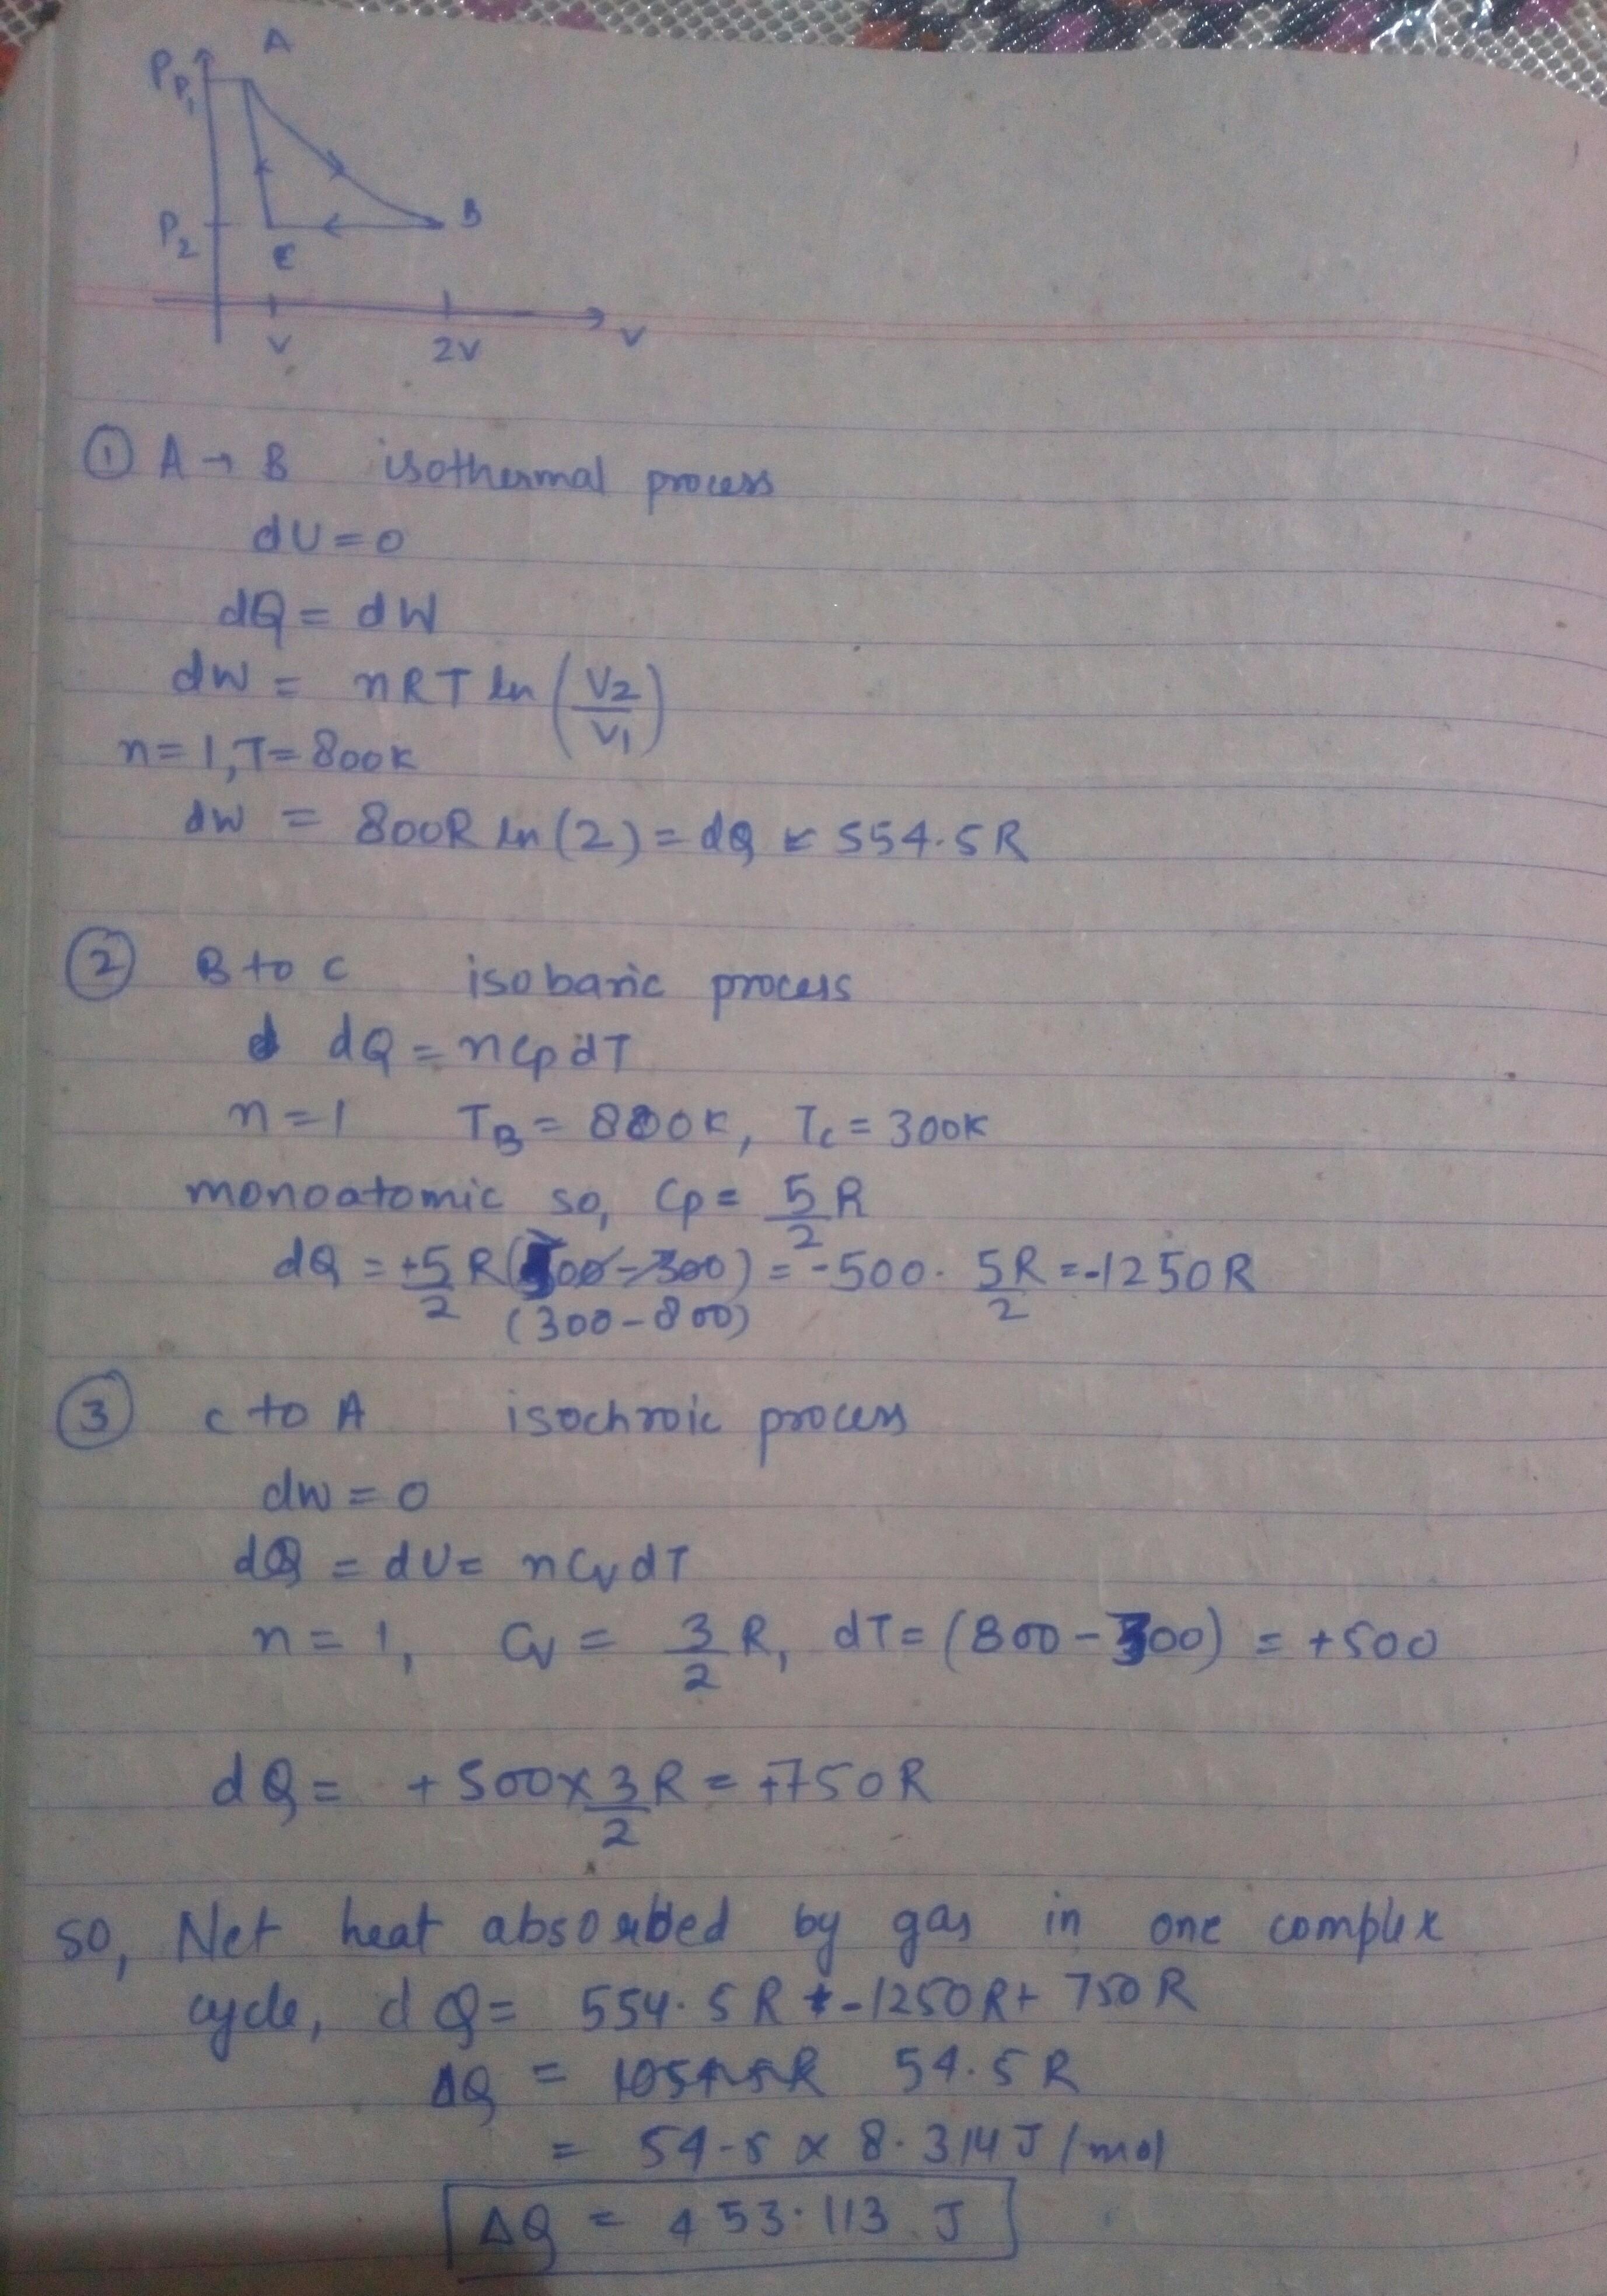 A
P
P1
P2
B
C
V
2V
V
① A → B isothermal process
dU = 0
dQ = dW
dW = nRT ln (V2/V1)
n = 1, T = 800K
dW = 800R ln(2) = dQ = 554.5R
② B to C isobaric process
d dQ = nCpdT
n = 1 TB = 800K, Tc = 300K
monoatomic so, Cp = 5/2 R
dQ = +5/2 R(500-300) = -500. 5R/2 = -1250R
(300-800)
③ C to A isochroic process
dW = 0
dQ = dU = nCvdT
n = 1, Cv = 3/2 R, dT = (800 - 300) = +500
dQ = +500 x 3/2 R = +750R
so, Net heat absorbed by gas in one complex
cycle, dQ = 554.5R + -1250R + 750R
ΔQ = 54.5R
= 54.5 x 8.314 J/mol
ΔQ = 453.113 J